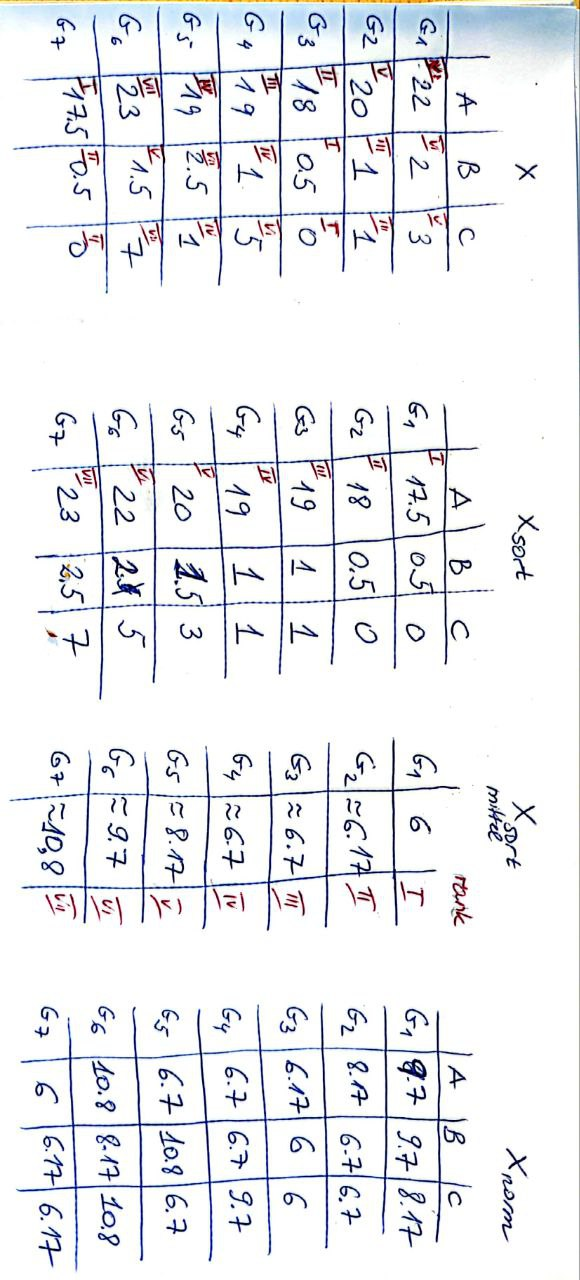 X
A B C
G1 22 VI 2 V 3
G2 V 20 III 1 III 1
G3 II 18 I 0.5 I 0
G4 III 19 IV 1 VI 5
G5 IV 19 VII 2.5 IV 1
G6 VII 23 V 1.5 VII 7
G7 I 17.5 II 0.5 II 0
Xsort
A B C
G1 I 17.5 0.5 0
G2 II 18 0.5 0
G3 III 19 1 1
G4 IV 19 1 1
G5 V 20 1.5 3
G6 VI 22 5
G7 VII 23 2,5 7
Xsort
mittel
rank
G1 6 I
G2 ≈6.17 II
G3 ≈6.7 III
G4 ≈6.7 IV
G5 ≈8.17 V
G6 ≈9.7 VI
G7 ≈10,8 VII
Xnorm
A B C
G1 9.7 9.7 8.17
G2 8.17 6.7 6.7
G3 6.17 6 6
G4 6.7 6.7 9.7
G5 6.7 10.8 6.7
G6 10.8 8.17 10.8
G7 6 6.17 6.17